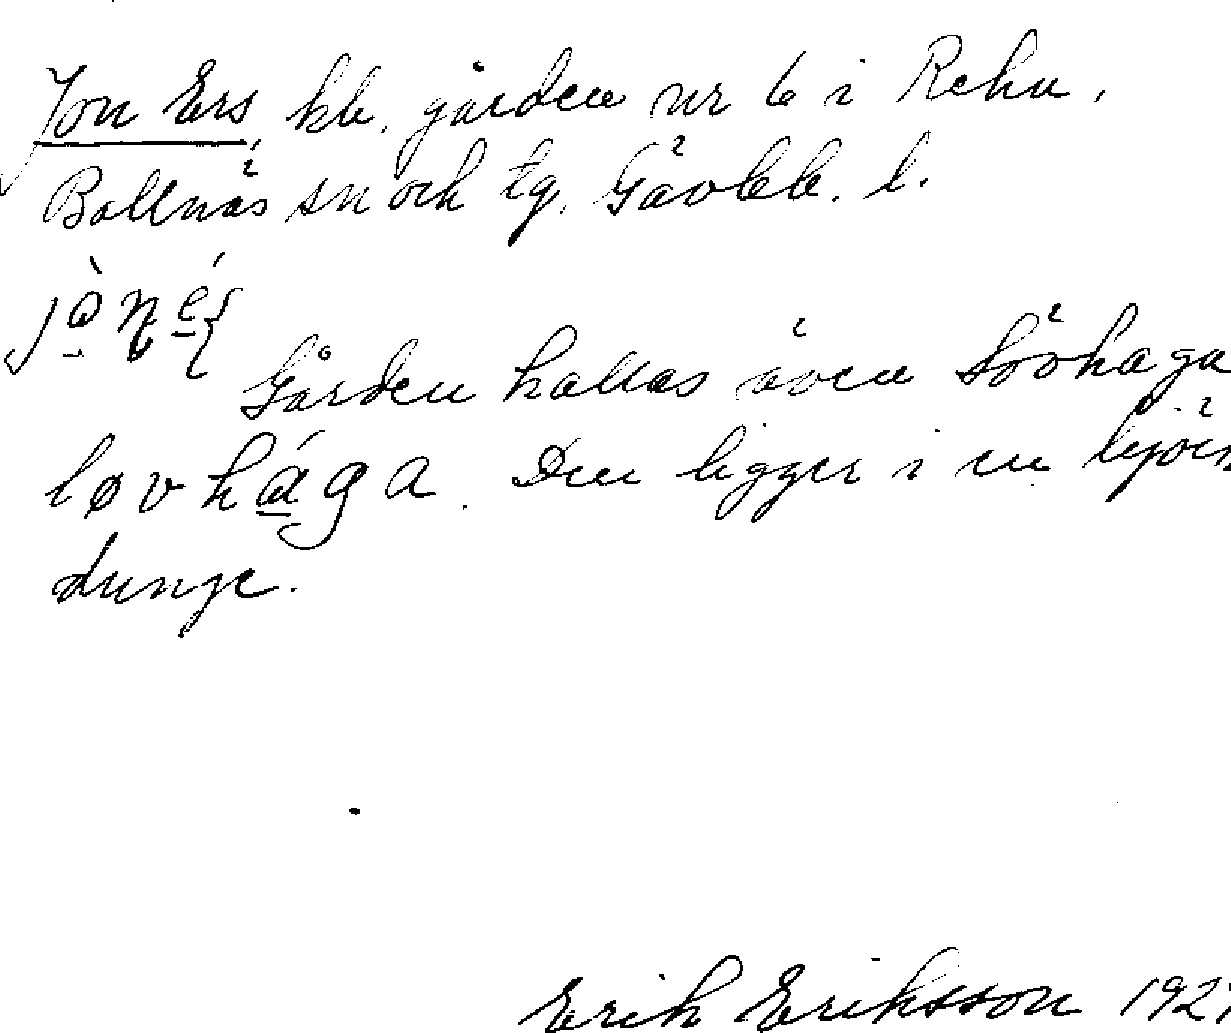 Jon Ers kk. gården nr 6 i Rehn,
Bollnäs sn och tg. Gävleb. l.
Gården kallas även Lövhaga
løvhága. Den ligger i en björk
dunge.
Erik Eriksson